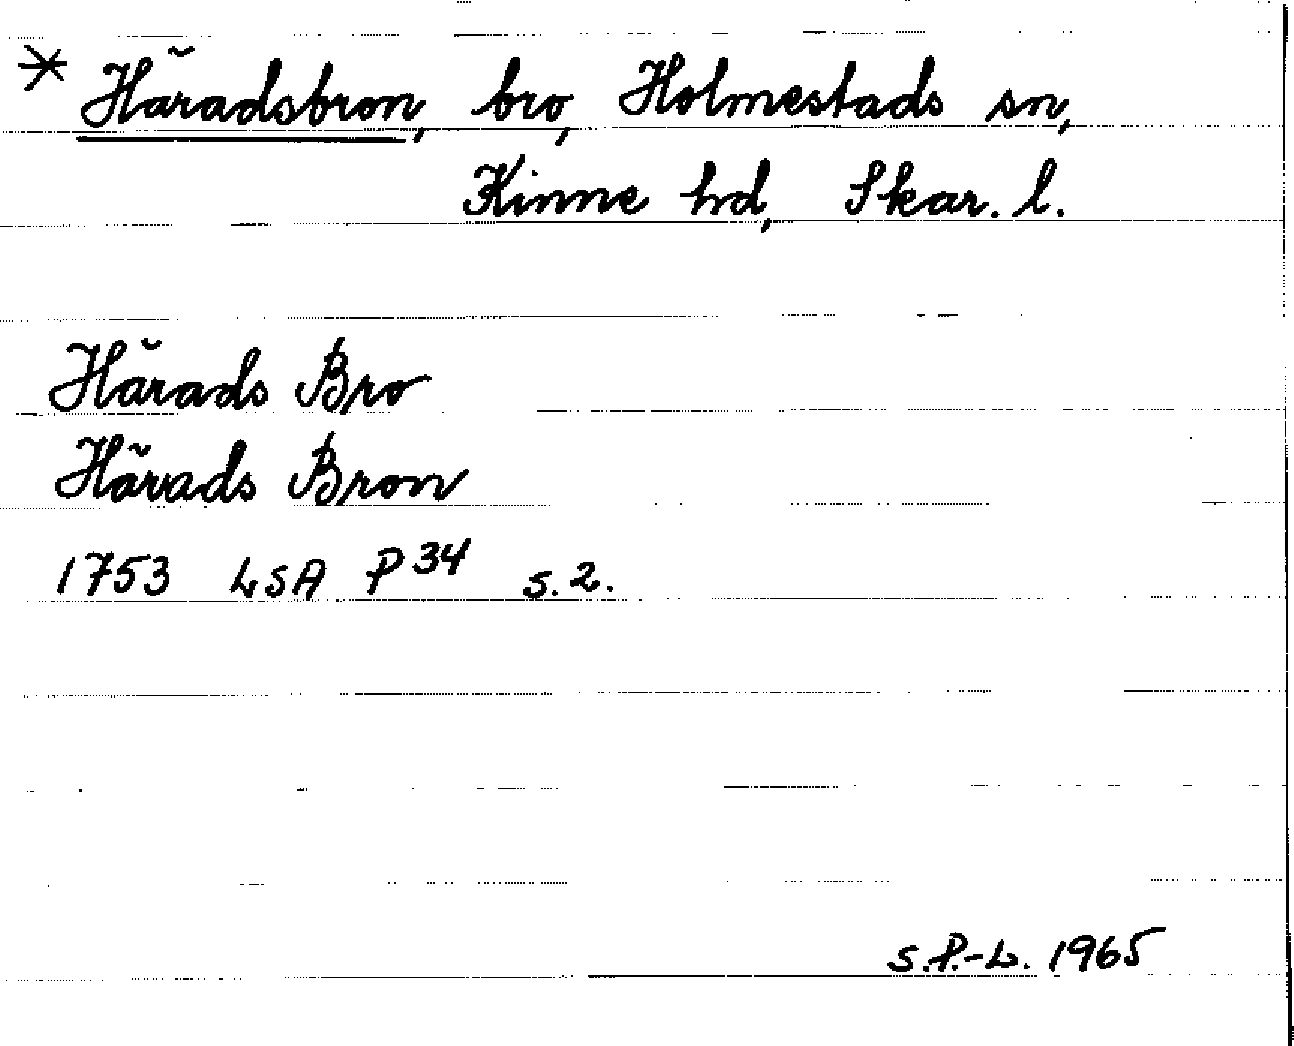 * Häradsbron, bro, Holmestads sn,
Kinne hd, Skar. l.
Härads Bro
Härads Bron
1753 LSA P 34 s. 2.
S.P.-L. 1965